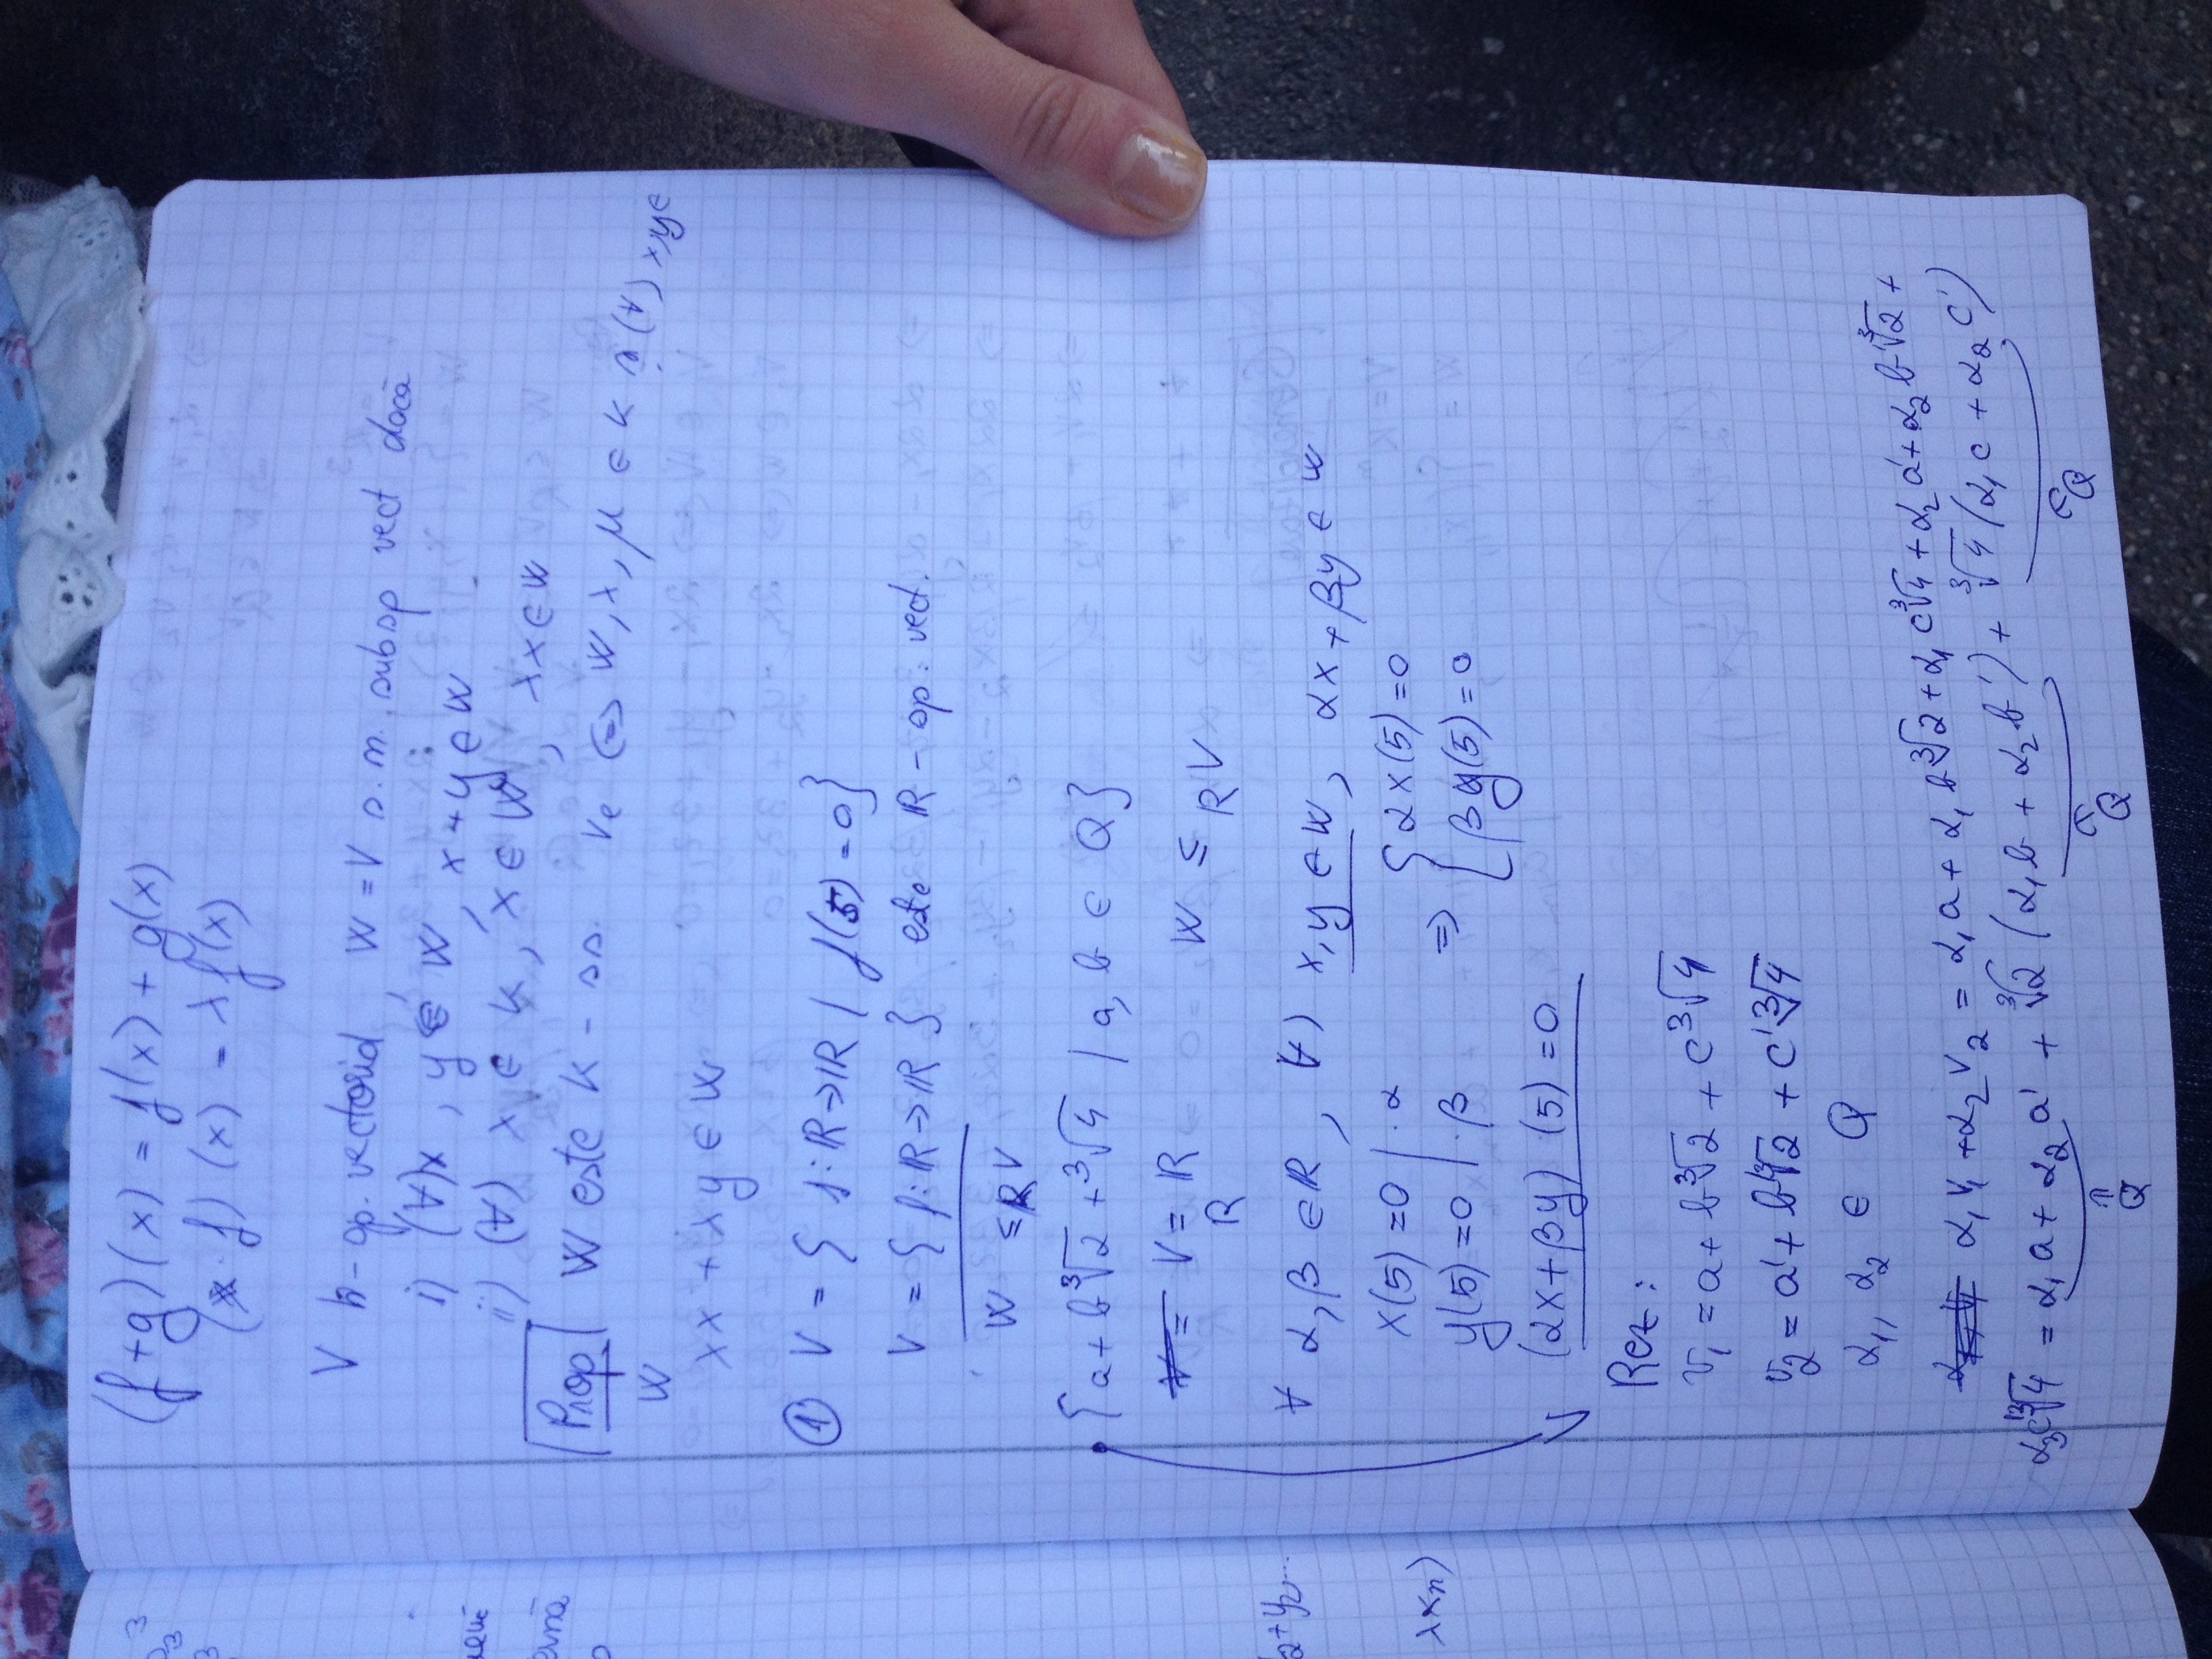 (f+g)(x) = f(x) + g(x)
( · f) (x) = λ f(x)
V k-sp. vectorial, W = V s.n. subsp vect dacă
i) (∀)x, y ∈ W, x+y ∈ W
ii) (∀) λ ∈ K, x ∈ W, λx ∈ W
Prop W este K - ss. ve ⇔ W, λ, μ ∈ K și (∀) x,y ∈
W
λx + λy ∈ W
① V = { f: ℝ→ℝ / f(5) = 0}
V = { f: ℝ→ℝ } este ℝ - sp. vect.
W ≤ℝ V
{a + b∛2 + ∛4 / a, b ∈ Q}
V = V = ℝ W ≤ R V
R
∀ α, β ∈ ℝ, ∀) x, y ∈ W, αx + βy ∈ W
x(5) = 0 | · α
y(5) = 0 | · β
⇒ { αx(5) = 0
βy(5) = 0
(αx + βy) (5) = 0
Rez:
v₁ = a + b∛2 + c∛4
v₂ = a' + b'∛2 + c'∛4
α₁, α₂ ∈ Q
α₁v₁ + α₂v₂ = α₁a + α₁b∛2 + α₁c∛4 + α₂a' + α₂b'∛2 +
α₃c'∛4 = α₁a + α₂a' + ∛2 (α₁b + α₂b') + ∛4 (α₁c + α₂c')
∈Q ∈Q ∈Q
ternă
λxₙ)